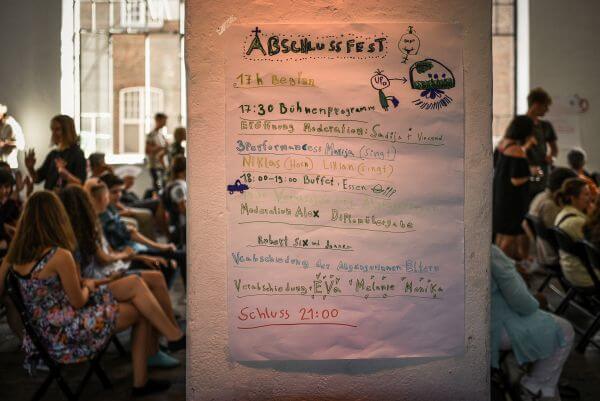 ABSCHLUSSFEST
17 h Beginn
17:30 Bühnenprogramm
Eröffnung Moderation: Sadija & Vincend
3 Performances Marija (singt)
NIKLAS (Horn) Lilian (singt)
18:00-19:00 Buffet, Essen
Moderation Alex Diplomübergabe
Robert Six und
Verabschiedung der abgegangenen Eltern
Verabschiedung: EVa Melanie Monika
Schluss 21:00